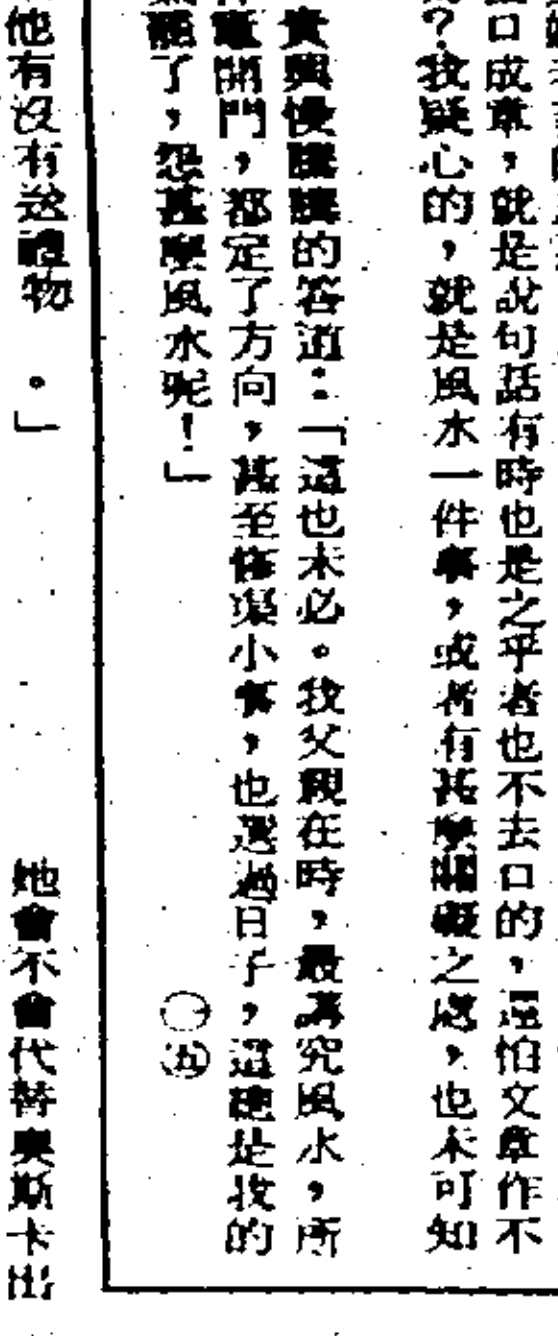 口成章，就是說句話有時也是之乎者也不去口的，還怕文章作不
？我疑心的，就是風水一件事，或者有甚麼關礙之處，也未可知
貴興慢騰騰的答道：「這也未必。我父親在時，最講究風水，所
竈開門，都定了方向，甚至修渠小事，也選過日子，這總是我的
了，怨甚麼風水呢！」
（五）
他有沒有送禮物 。」
她會不會代替奧斯卡出